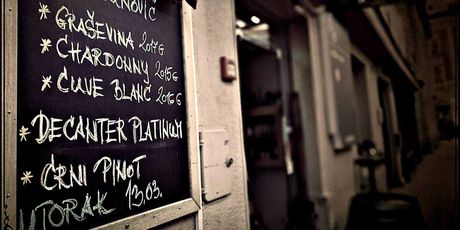 * GRAŠEVINA 2017G
* CHARDONNY 2015G
* CUVE BLANC 2016G
* DECANTER PLATINUM
* CRNI PINOT
UTORAK 13,03.